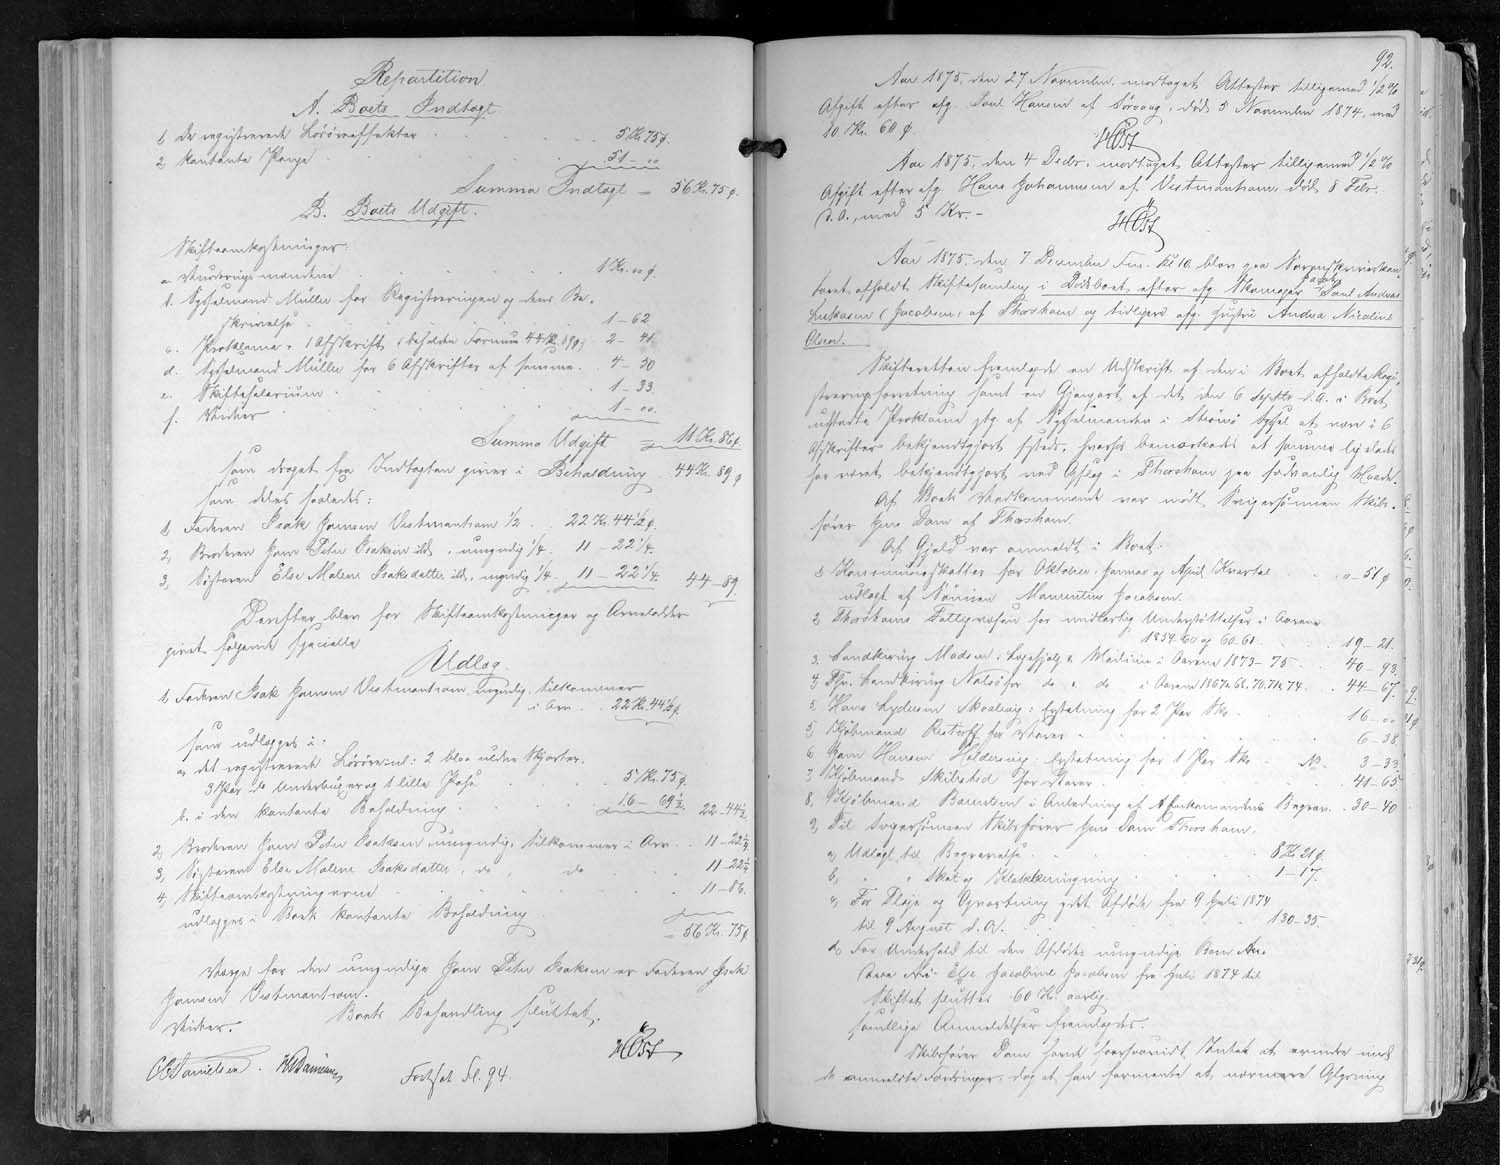 Repartition
A. Boets Indtægt
1, De registrerede Løsøreeffekter 5 Kr. 75 ø.
2, kontante Penge 51 - 00
Summa Indtægt = 56 Kr. 75 ø.
B. Boets Udgift.
Skifteomkostninger:
a Vurderingsmændene 1 Kr. 00 ø.
b. Sysselmand Müller for Registreringen og dens Be-
skrivelse 1 - 62
c. Proklama, 1 Afskrift (beholden Formue 44 Kr. 89 ø) 2 - 41
d. Sysselmand Müller for 6 Afskrifter af samme. 4 - 50
e. Skiftesalarium 1 - 33.
f. Vidner 1 - 00.
Summa Udgift = 11 Kr. 86 ø
som draget fra Indtægten giver i Behældning 44 Kr. 89 ø
som deles saaledes:
1, Faderen Isak Joensen Vestmanhavn 1/2 22 Kr. 44 1/2 ø.
2, Broderen Joen Peter Isaksen ibd., umyndig 1/4. 11 - 22 1/4.
3, Søsteren Else Malene Isaksdatter ibd., myndig 1/4. 11 - 22 1/4. 44 - 89.
Derefter blev for Skifteomkostninger og Arvelodder
givet følgende specielle
Udlæg.
1, Faderen Isak Joensen Vestmanhavn, myndig, tilkommer
i Arv 22 Kr. 44 1/2 ø.
som udlægges i:
a, det registrerede Løsøre: 2 blaa uldne Skjorter,
3 Par do Underbuxer og 1 lille Pose 5 Kr. 75 ø.
b. i den kontante Beholdning 16 - 69 1/2. 22 - 44 1/2
2, Broderen Joen Peter Isaksen umyndig, tilkommer i Arv 11 - 22 1/4
3, Søsteren Else Malene Isaksdatter, do, do 11 - 22 1/4
4, Skifteomkostningerne 11 - 86.
udlægges i Boets kontante Beholdning
= 56 Kr. 75 ø
Værge for den umyndige Joen Peter Isaksen er Faderen Isak
Joensen Vestmanhavn.
Boets Behandling sluttet.
Vidner. HØst
Danielsen. Fortsat Fol. 94.
92.
Aar 1875, den 27 November, modtaget Attester tilligemed 1/2 %
Afgift efter afg. Poul Hansen af Sørvaag, død 5 November 1874, med
10 Kr. 60 ø.
HØst
Aar 1875, den 4 Decbr., modtaget Attester tilligemed 1/2 %
Afgift efter afg. Hans Johannesen af Vestmanhavn, død 8 Febr.
d. A., med 5 Kr. -
HØst
Aar 1875, den 7 December Fm. Kl 10, blev paa Sorenskriverkon-
toret afholdt Skiftesamling i Dødsboet efter afg. Skomager Jacob Poul Andreas
Lukasen (Jacobsen) af Thorshavn og tidligere afg. Hustru Andrea Nicoline
Olsen.
Skifteretten fremlagde en Udskrift af den i Boet afholdte Regi-
streringsforretning samt en Gjenpart af det den 6 Septbr. d. A. i Boet
udstedte Proklama ptg. af Sysselmanden i Strømø Syssel at være i 6
Afskrifter bekjendtgjort sysledes, hvorhos bemærkedes at samme ligeledes
har været bekjendtgjort ved Opslag i Thorshavn paa sædvanlig Maade.
Af Boets Vedkommende var mødt Svigersønnen Skibs-
fører Jens Dam af Thorshavn.
Af Gjæld var anmeldt i Boet:
1, Kommuneskatter for Oktober, Januar og April Kvartal 0 - 51 ø
udlagt af Sønnen Jacobsen.
2, Thorshavns Fattigvæsen for midlertidig Understøttelse i Aarene
1859-60 og 60-61. 19 - 21.
3. Landkirurg Madsen, Lægehjælp & Medicin i Aarene 1873-75 40 - 93.
4, Fhv. Landkirurg do & do i Aarene 1867, 68, 70, 71 & 74. 44 - 67.
5, Hans Lydersen Skaalevig: Erstatning for 2 Par Sko 16 - 00
5, Kjøbmand Restorff for Varer 6 - 38.
6, Joen Hansen Haldersvig, Erstatning for 1 Par Sko 3 - 33.
7, Kjøbmand Skibsted for Varer 41 - 65
8, Kjøbmand Berentsen i Anledning af Begrav. 30 - 40
9, Til Svigersønnen Skibsfører Jens Dam Thorshavn,
a, Udlagt til Begravelse 8 Kr. 21 ø.
b, " " Skat og Klokkeringning 1 - 17.
c, For Pleje og Opvartning ydet Afdøde fra 9 Juli 1874
til 9 August d. A. 130 - 35.
d, For Underhold til den Afdødes umyndige Barn
Else Jacobine Jacobsen fra Juli 1874 til
Skiftet sluttes 60 Kr. aarlig.
samtlige Anmeldelser fremlagdes.
Skibsfører Dam havde foreløbigt Intet at erindre mod
de anmeldte Fordringer, dog at han formente at nærmere Oplysning